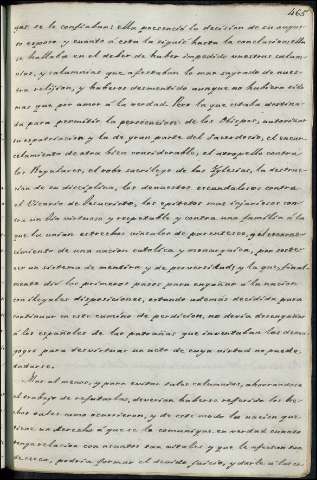 465
que se le confiaban: ella presenció la decision de su augus-
to esposo y cuanto á esta la siguió hasta la conclusion: ella
se hallaba en el deber de haber impedido vuestras calum-
nias, y calumnias que afectaban lo mas sagrado de nues-
tra relijion, y haberos desmentido aunque no hubiera sido
mas que por amor á la verdad. Pero la que estaba destina-
da para permitir la persecucion de los Obispos, autorizar
su espatriacion y la de gran parte del Sacerdocio, el encar-
celamiento de otra bien considerable, el atropello contra
los Regulares, el robo sacrílego de las Iglesias, la destruc-
cion de su disciplina, los denuestos escandalosos contra
el Vicario de Jesucristo, los epitetos mas injuriosos con-
tra un tio virtuoso y respetable y contra una familia á la
que la unian estrechos vínculos de parentesco, y el
cimiento de una nacion católica y monarquica, por soste-
ner un sistema de mentira y de perversidad; y la que, final-
mente dió los primeros pasos para engañar á la nacion
con ilegales disposiciones, estando además decidida para
continuar en este camino de perdicion, no debia desengañar
á los españoles de las patrañas que inventaban los dema-
gogos para desvirtuar un acto de cuya virtud no puede
dudarse.
Mas al menos, y para evitar tales calumnias, ahorrandose
el trabajo de refutarlas, deverian haberse referido los he-
chos tales como ocurrieron, y de este modo la nacion que
tiene un derecho á que se la comunique en verdad cuanto
tenga relacion con asuntos tan vitales y que le afectan tan
de cerca, podria formar el devido juicio, y darle á las co-